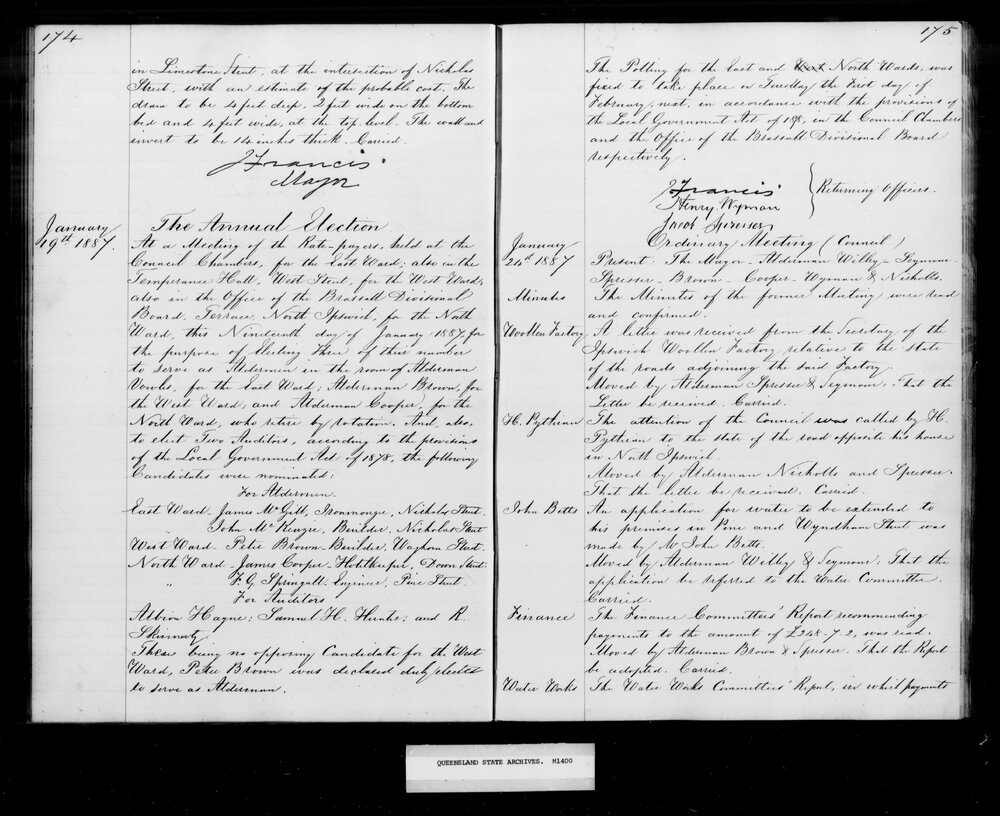 174
in Limestone Street, at the intersection of Nicholas
Street, with an estimate of the probable cost. The
drain to be 4 feet deep, 2 feet wide on the bottom
bed and 4 feet wide, at the top level. The wall and
invert to be 14 inches thick. Carried.
J Francis
Mayor
January
19th 1887.
The Annual Election
At a Meeting of the Rate-payers, held at the
Council Chambers, for the East Ward; also in the
Temperance Hall, West Street, for the West Ward;
also in the Office of the Brassall Divisional
Board, Terrace, North Ipswich, for the North
Ward, this Nineteenth day of January 1887, for
the purpose of Electing Three of their number
to serve as Aldermen in the room of Alderman
Vowles, for the East Ward; Alderman Brown, for
the West Ward; and Alderman Cooper, for the
North Ward, who retire by rotation. And, also,
to elect Two Auditors, according to the provisions
of the Local Government Act of 1878, the following
Candidates were nominated:
For Aldermen.
East Ward. James McGill, Ironmonger, Nicholas Street.
" John McKenzie, Builder, Nicholas Street
West Ward - Peter Brown - Builder, Waghorn Street.
North Ward - James Cooper - Hotelkeeper, Down Street.
" F. G. Springall. Engineer, Pine Street.
For Auditors
Albion Hayne; Samuel H. Hunter; and R.
There being no opposing Candidate for the West
Ward, Peter Brown was declared duly elected
to serve as Alderman.
175
The Polling for the East and West North Wards, was
fixed to take place on Tuesday the First day of
February, next, in accordance with the provisions of
the Local Government Act of 1878, in the Council Chambers
and the Office of the Brassall Divisional Board
respectively.
J Francis
Henry Wyman
Jacob Spresser
Returning Officers.
January
24th 1887
Ordinary Meeting (Council)
Present. The Mayor - Alderman Willey - Seymour -
Spresser - Brown - Cooper - Wyman & Nicholls.
Minutes
The Minutes of the former Meeting were read
and confirmed.
Woollen Factory
A letter was received from the Secretary of the
Ipswich Woollen Factory relative to the state
of the roads adjoining the said Factory.
Moved by Alderman Spresser & Seymour. That the
Letter be received. Carried.
H. Pythian
The attention of the Council was called by H.
Pythian to the state of the road opposite his house
in North Ipswich.
Moved by Alderman Nicholls and Spresser.
That the letter be received. Carried.
John Betts
An application for water to be extended to
his premises in Pine and Wyndham Street was
made by Mr John Betts.
Moved by Alderman Willey & Seymour. That the
application be referred to the Water Committee.
Carried.
Finance
The Finance Committees' Report recommending
payments to the amount of £248-7-2, was read.
Moved by Alderman Brown & Spresser. That the Report
be adopted. Carried.
Water Works
The Water Works Committees' Report, in which payments
QUEENSLAND STATE ARCHIVES. M1400